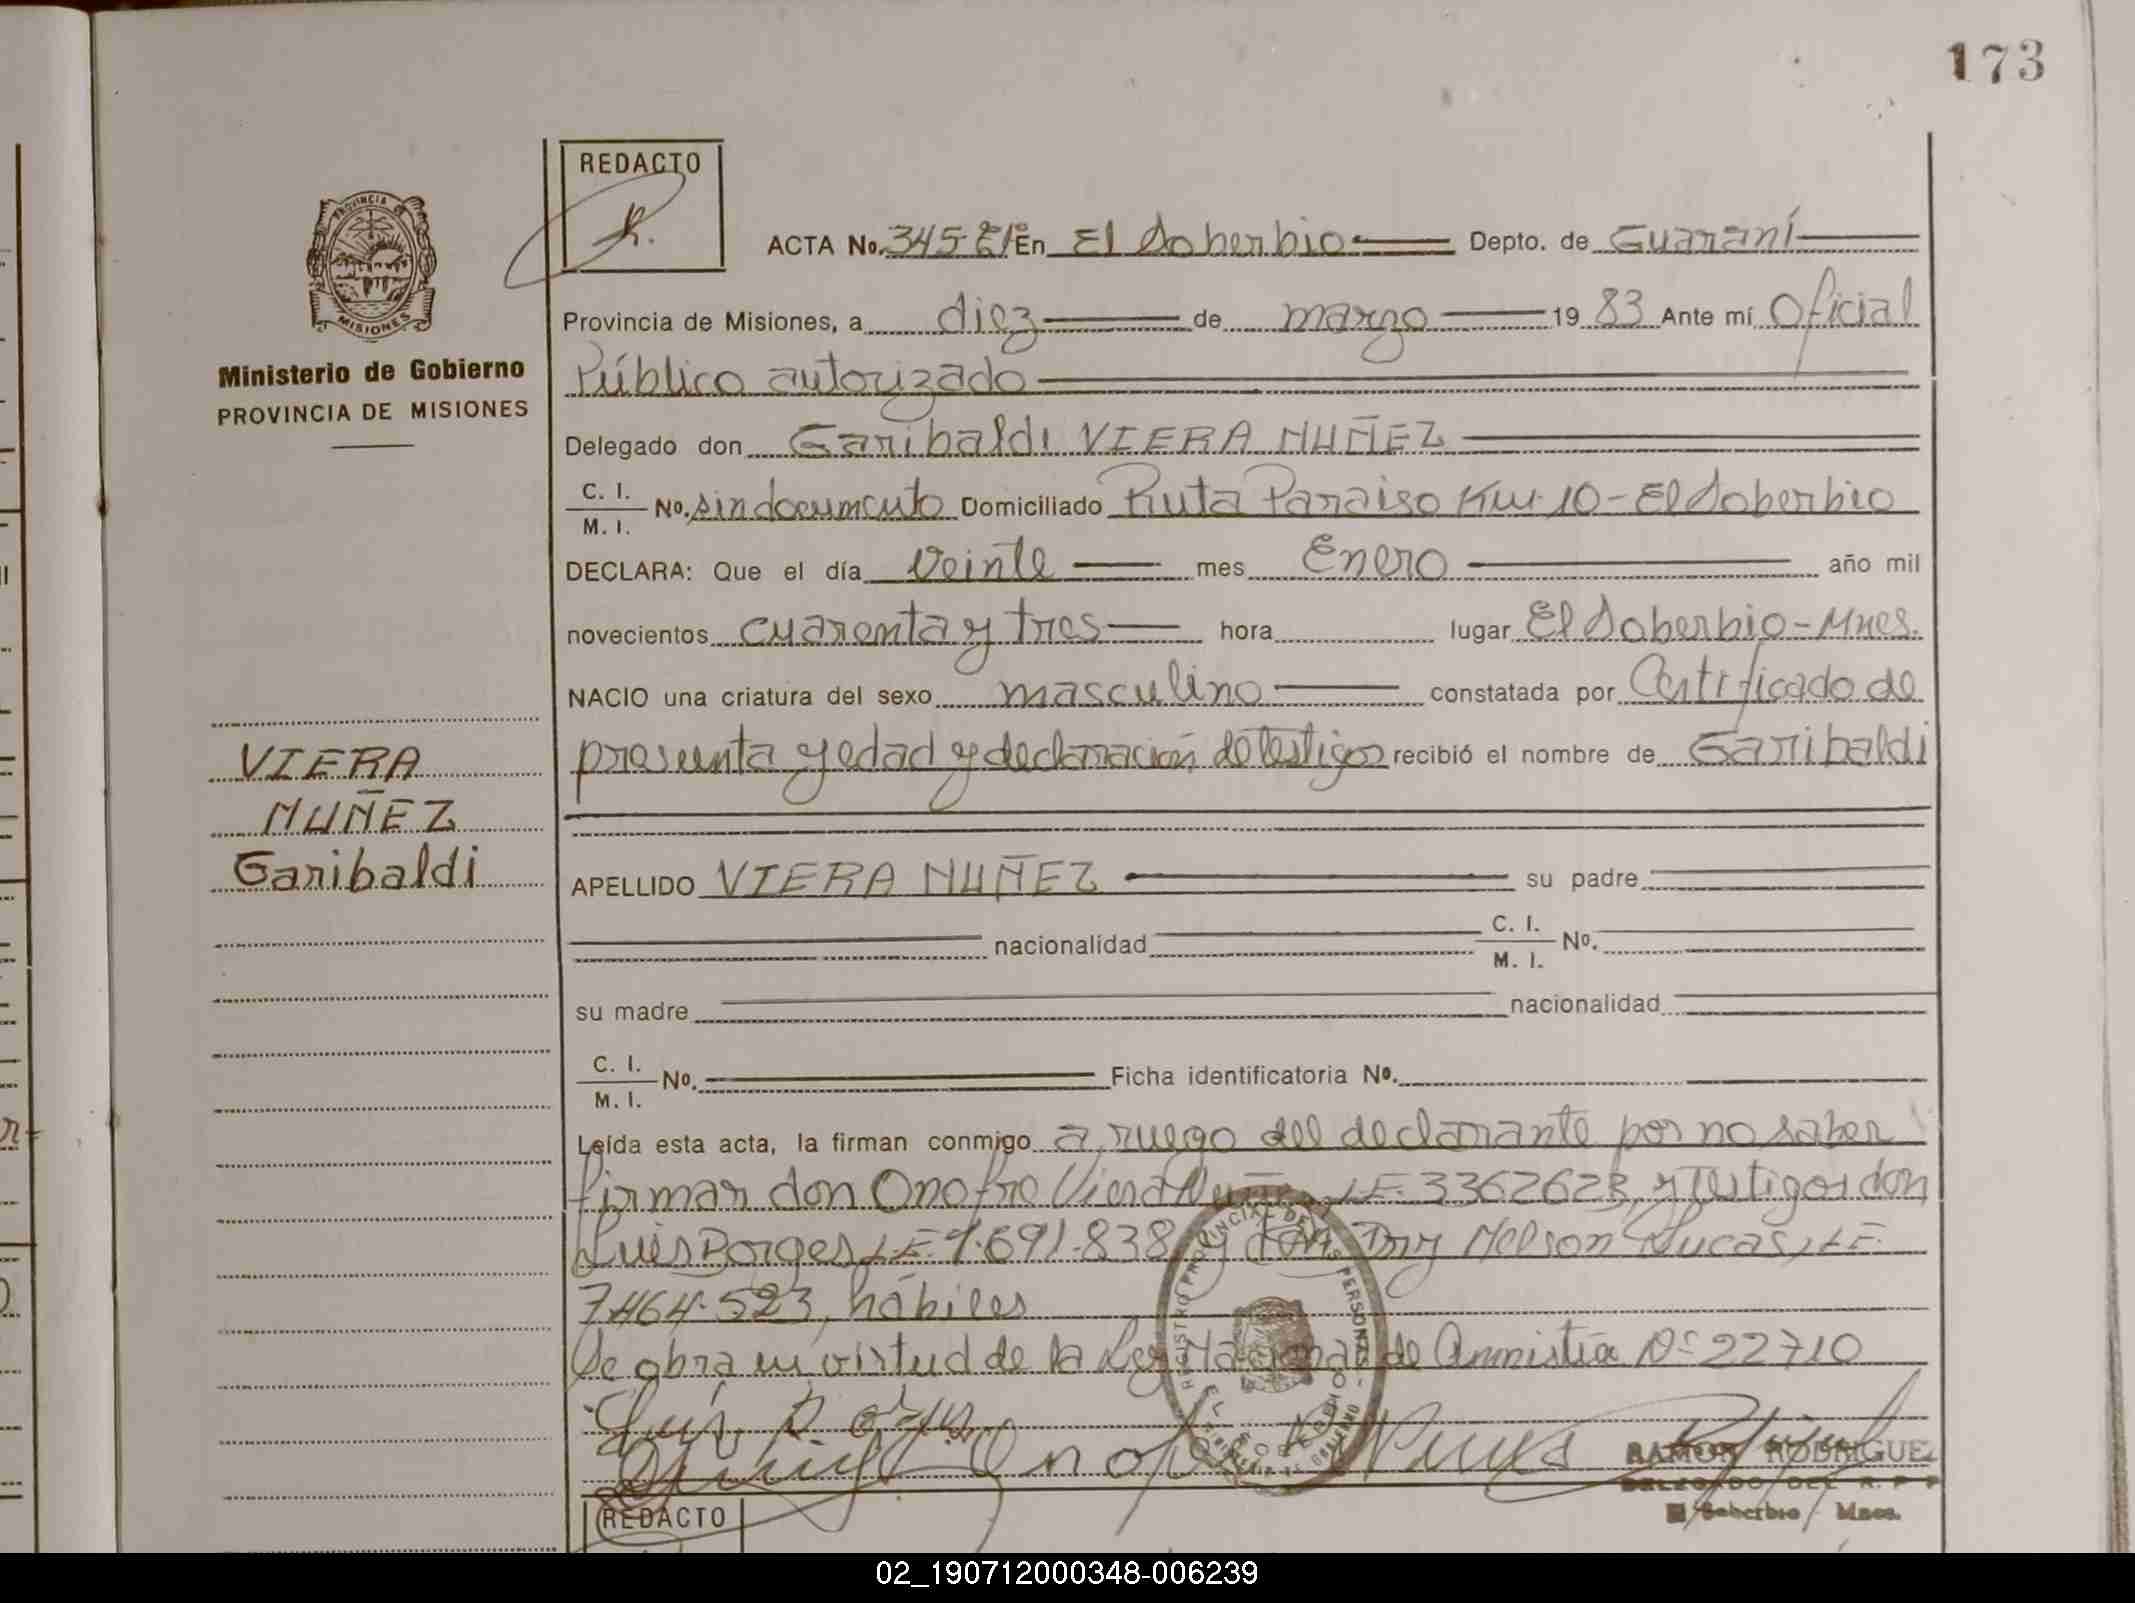 173
REDACTO
PROVINCIA DE
MISIONES
Ministerio de Gobierno
PROVINCIA DE MISIONES
ACTA No. 345 En El Soberbio Depto. de Guaraní
Provincia de Misiones, a diez de marzo 19 83 Ante mí Oficial
Público autorizado
Delegado don Garibaldi VIERA NUÑEZ
C. I.
M. I. No. sin documento Domiciliado Ruta Paraiso Km 10 - El Soberbio
DECLARA: Que el día Veinte mes Enero año mil
novecientos cuarenta y tres hora lugar El Soberbio - Mnes.
NACIO una criatura del sexo masculino constatada por Certificado de
presunta y edad y declaración de testigos recibió el nombre de Garibaldi
VIERA
NUÑEZ
Garibaldi
APELLIDO VIERA NUÑEZ su padre
nacionalidad C. I.
M. I. No.
su madre nacionalidad
C. I.
M. I. No. Ficha identificatoria No.
Leída esta acta, la firman conmigo a ruego del declarante por no saber
firmar don Onofre Viera Nuñez L.E. 3362623, y Testigos don
Luis Borges L.E. 7.691.838 y don Nelson L.E.
7.464.523, hábiles
Se obra en virtud de la Ley Nacional de Amnistía Nº 22710
REGISTRO PROVINCIAL DE LAS PERSONAS
RAMON RODRIGUEZ
DELEGADO DEL R. P. P.
El Soberbio Mnes.
REDACTO
02_190712000348-006239